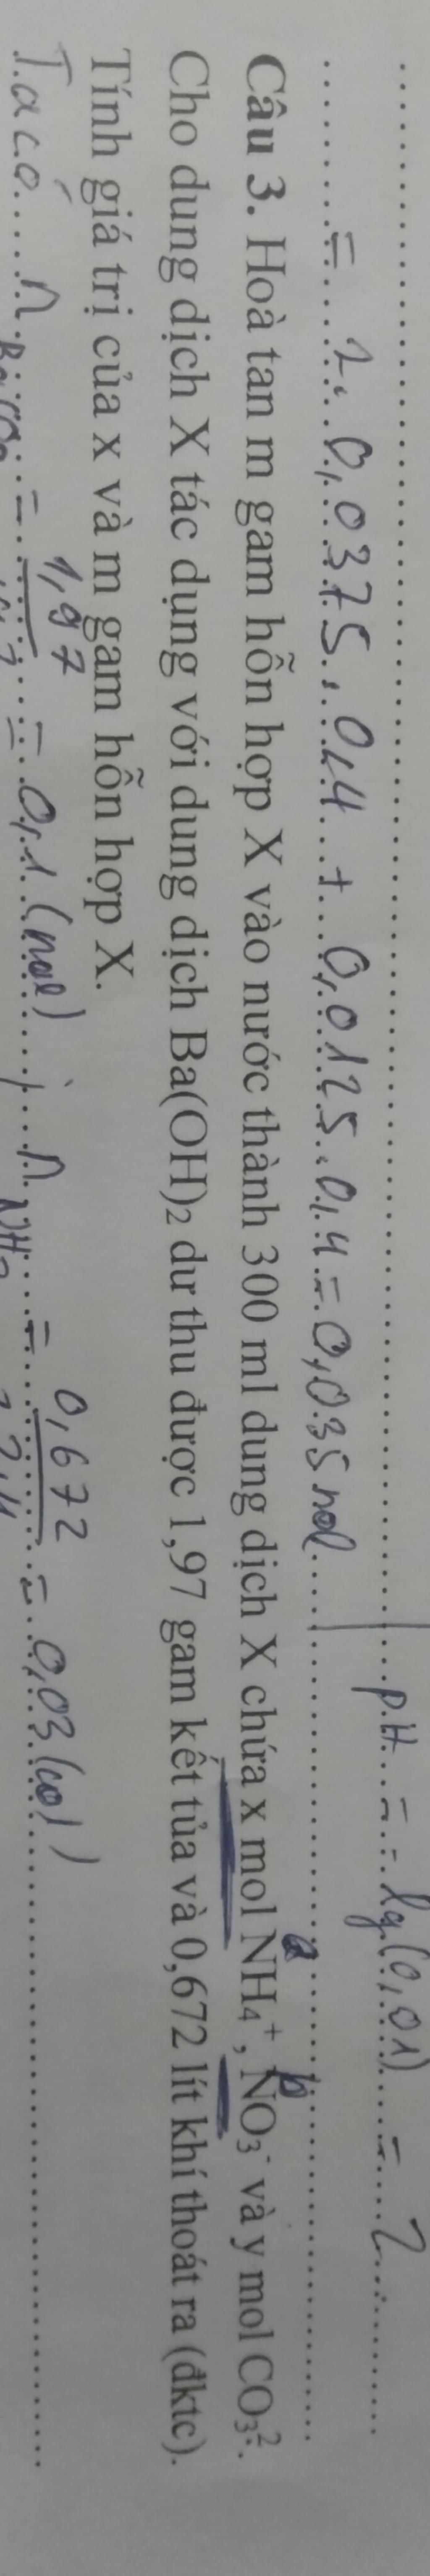 = 2. 0,0375.0,4 + 0,0125.0,4 = 0,035 mol | pH = -lg(0,01) = 2
a b
Câu 3. Hoà tan m gam hỗn hợp X vào nước thành 300 ml dung dịch X chứa x mol NH₄⁺, NO₃⁻ và y mol CO₃²⁻.
Cho dung dịch X tác dụng với dung dịch Ba(OH)₂ dư thu được 1,97 gam kết tủa và 0,672 lít khí thoát ra (đktc).
Tính giá trị của x và m gam hỗn hợp X.
Ta có n = 1,97 = 0,1 (mol) ; n = 0,672 = 0,03 (mol)